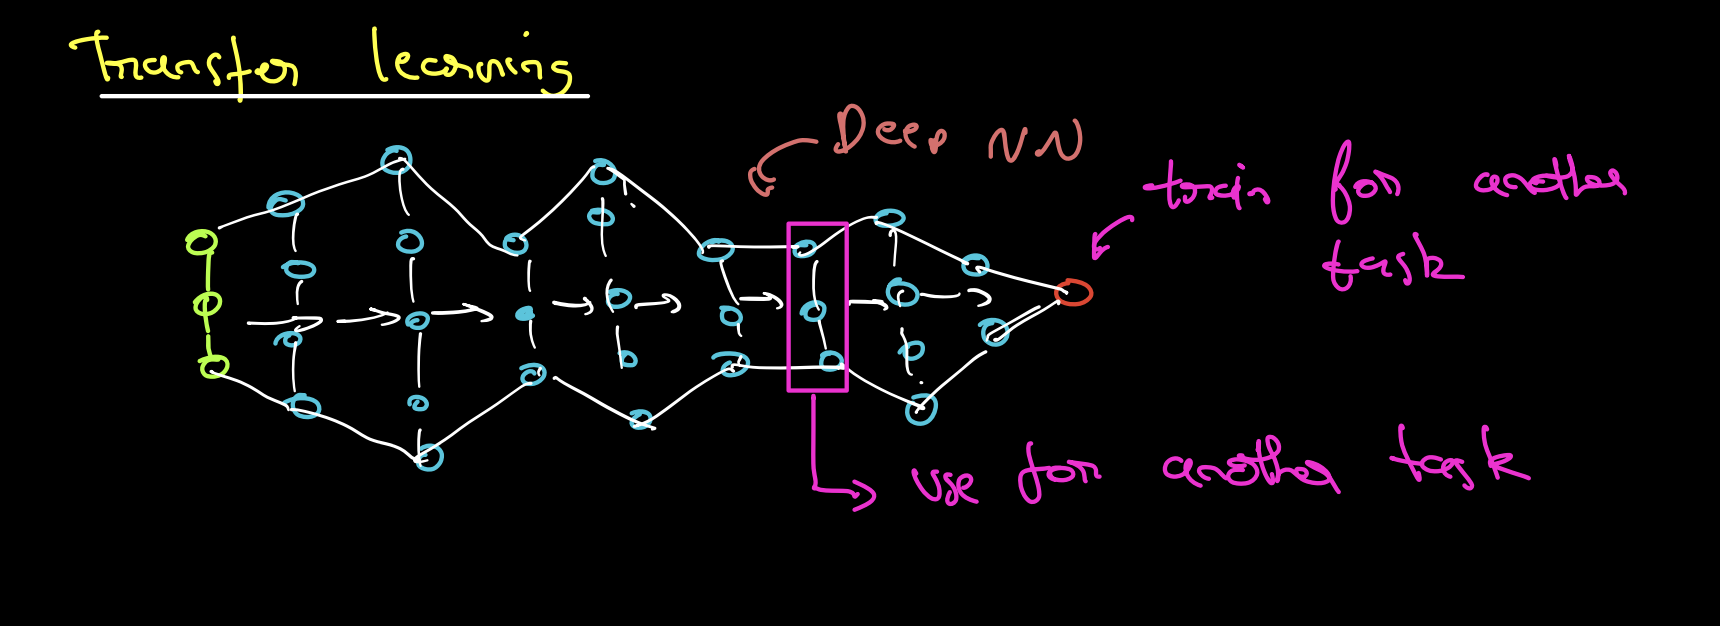 Transfer learning
Deep NN
train for another
task
use for another task